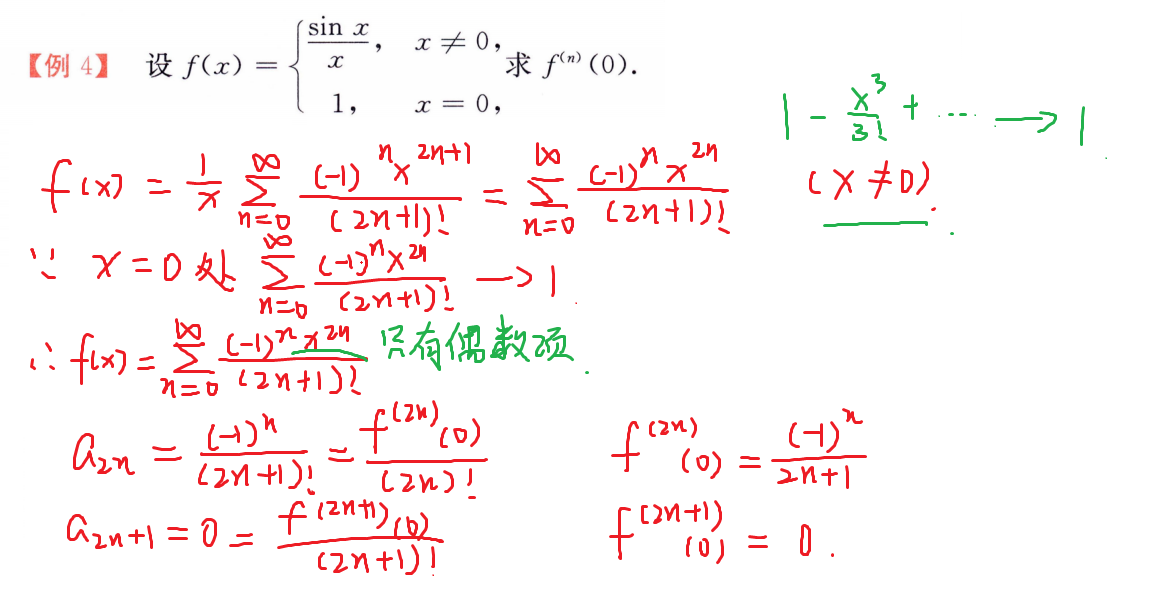 【例 4】 设 f(x) = { sin x / x, x ≠ 0, 1, x = 0, 求 f⁽ⁿ⁾(0).
1 - x³/3! + ⋯ → 1
f(x) = 1/x ∑_{n=0}^{∞} (-1)ⁿx^{2n+1}/(2n+1)! = ∑_{n=0}^{∞} (-1)ⁿx^{2n}/(2n+1)! (x ≠ 0).
∵ x = 0 处 ∑_{n=0}^{∞} (-1)ⁿx^{2n}/(2n+1)! → 1
∴ f(x) = ∑_{n=0}^{∞} (-1)ⁿx^{2n}/(2n+1)! 只有偶数项.
a_{2n} = (-1)ⁿ/(2n+1)! = f^{(2n)}(0)/(2n)! f^{(2n)}(0) = (-1)ⁿ/2n+1
a_{2n+1} = 0 = f^{(2n+1)}(0)/(2n+1)! f^{(2n+1)}(0) = 0.